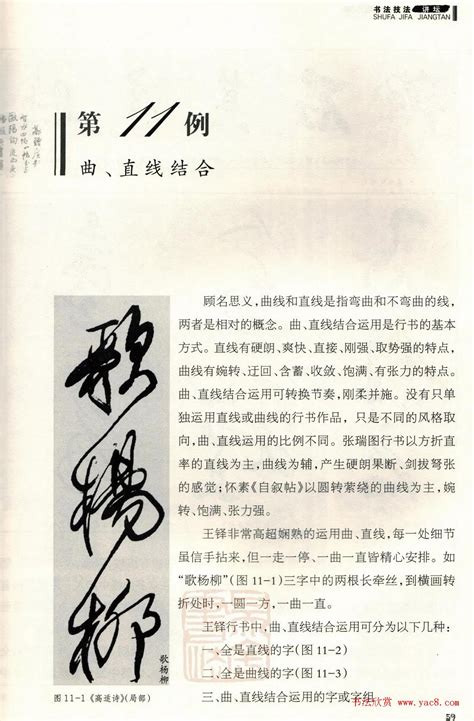 书法技法 讲坛
SHUFA JIFA JIANGTAN
第11例
曲、直线结合
顾名思义,曲线和直线是指弯曲和不弯曲的线,
两者是相对的概念。曲、直线结合运用是行书的基本
方式。直线有硬朗、爽快、直接、刚强、取势强的特点,
曲线有婉转、迂回、含蓄、收敛、饱满、有张力的特点。
曲、直线结合运用可转换节奏,刚柔并施。没有只单
独运用直线或曲线的行书作品，只是不同的风格取
向,曲、直线运用的比例不同。张瑞图行书以方折直
率的直线为主,曲线为辅,产生硬朗果断、剑拔弩张
的感觉;怀素《自叙帖》以圆转萦绕的曲线为主,婉
转、饱满、张力强。
王铎非常高超娴熟的运用曲、直线,每一处细节
虽信手拈来,但一走一停、一曲一直皆精心安排。如
“歌杨柳”(图 11-1)三字中的两根长牵丝,到横画转
折处时,一圆一方,一曲一直。
王铎行书中,曲、直线结合运用可分为以下几种:
一、全是直线的字(图 11-2)
二、全是曲线的字(图 11-3)
三、曲、直线结合运用的字或字组
歌楊柳
歌杨柳
图 11-1《高适诗》(局部)
59
书法欣赏 www.yac8.com